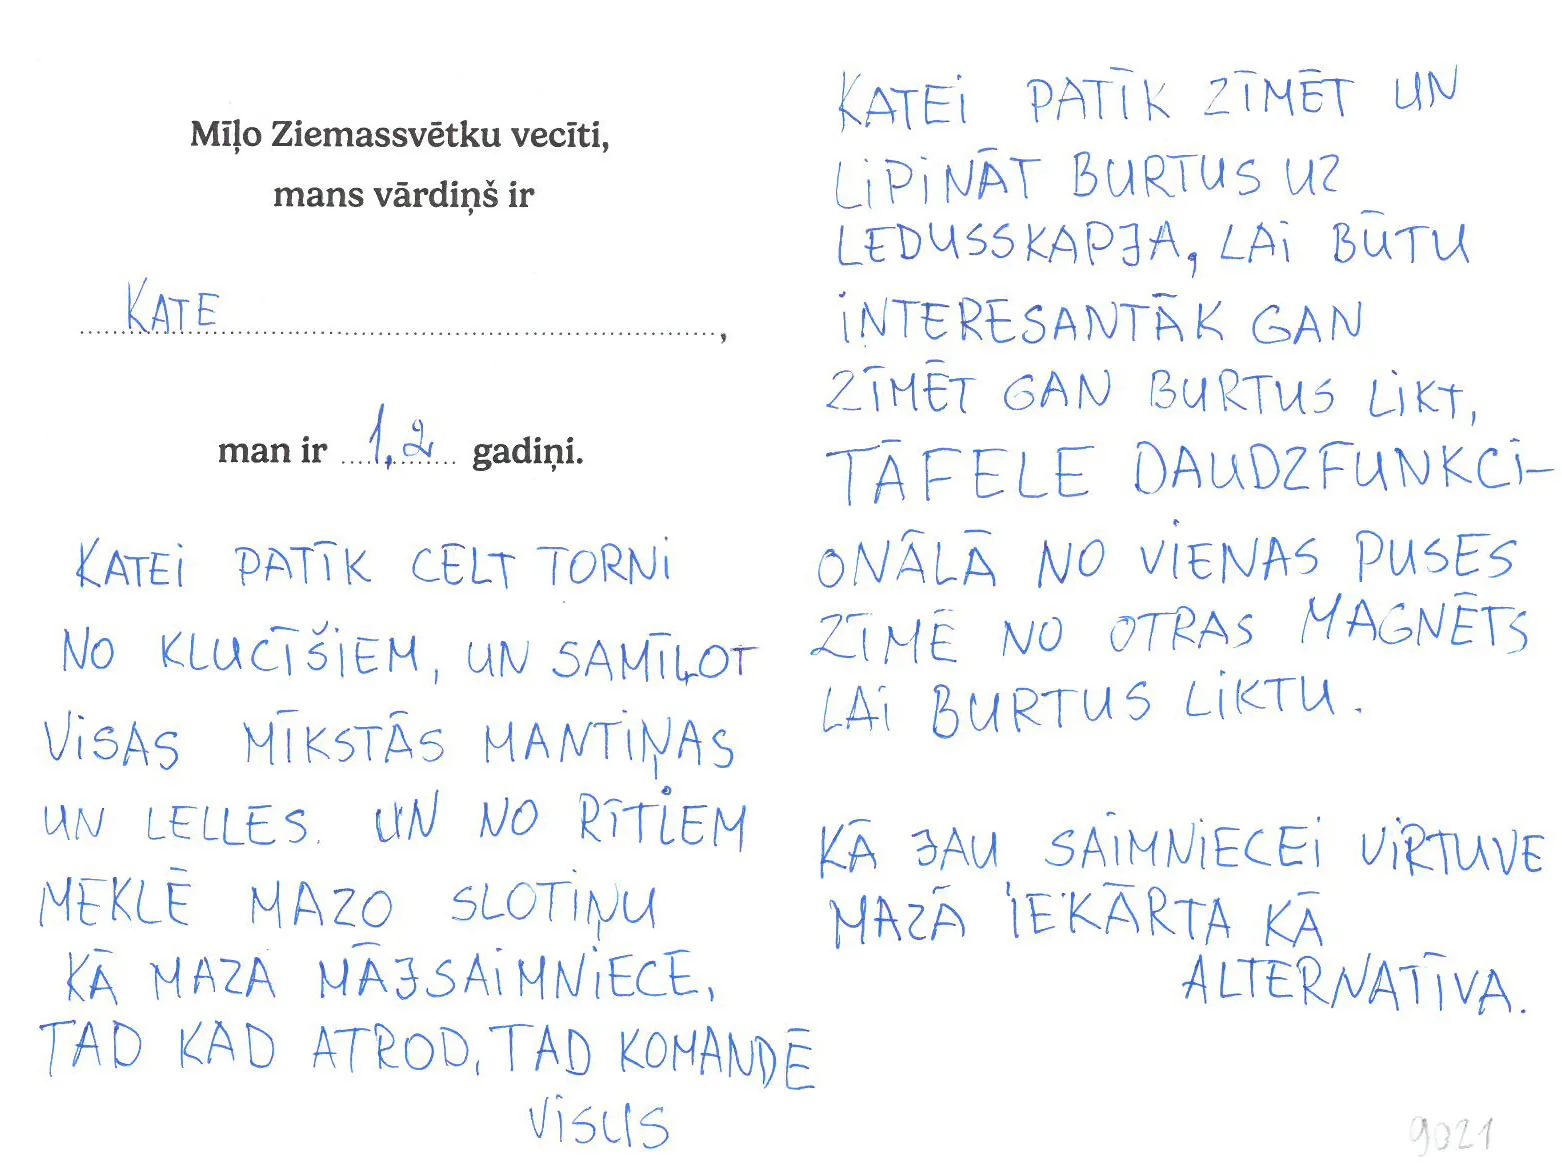 Mīļo Ziemassvētku vecīti,
mans vārdiņš ir
KATE,
man ir 1,2 gadiņi.
KATEI PATĪK CELT TORNI
NO KLUCĪŠIEM, UN SAMĪĻOT
VISAS MĪKSTĀS MANTIŅAS
UN LELLES. UN NO RĪTIEM
MEKLĒ MAZO SLOTIŅU
KĀ MAZA MĀJSAIMNIECE,
TAD KAD ATROD, TAD KOMANDĒ
VISUS
KATEI PATĪK ZĪMĒT UN
LIPINĀT BURTUS UZ
LEDUSSKAPJA, LAI BŪTU
INTERESANTĀK GAN
ZĪMĒT GAN BURTUS LIKT,
TĀFELE DAUDZFUNKCI-
ONĀLĀ NO VIENAS PUSES
ZĪMĒ NO OTRAS MAGNĒTS
LAI BURTUS LIKTU.
KĀ JAU SAIMNIECEI VIRTUVE
MAZĀ IEKĀRTA KĀ
ALTERNATĪVA.
9021